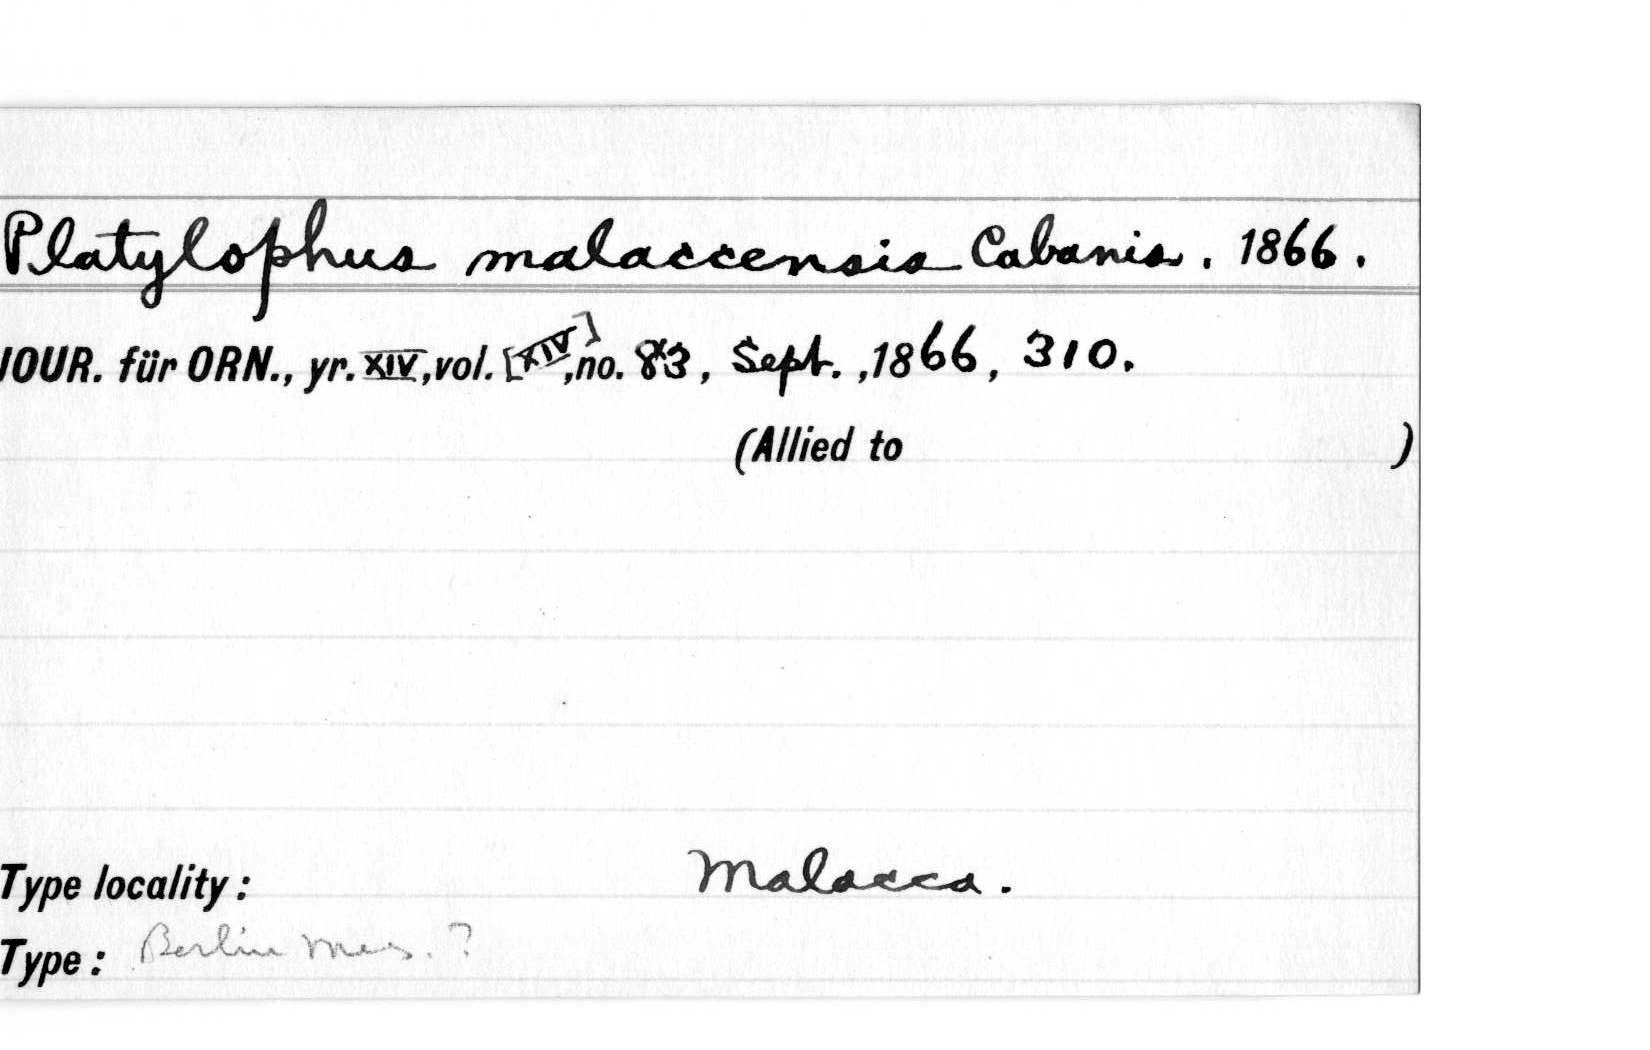 Platylophus malaccensis Cabanis. 1866.
JOUR. für ORN., yr. XIV, vol. [XIV], no. 83, Sept., 1866, 310.
(Allied to )
Type locality: Malacca.
Type: Berlin Mus. ?